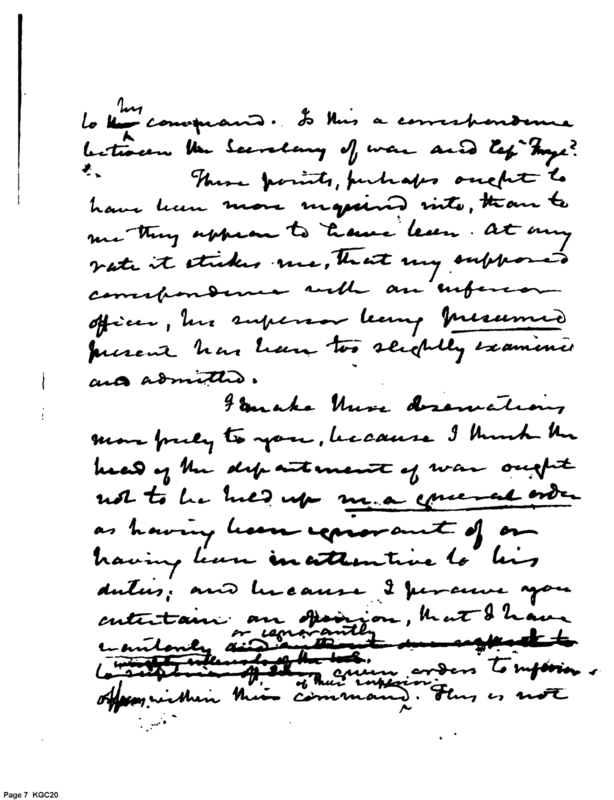 his
to the command. Is this a correspondence
between the Secretary of war and Capt Frye?
These points, perhaps ought to
have been more inquired into, than to
me they appear to have been. At any
rate it strikes me, that my supposed
correspondence with an inferior
officer, his superior being presumed
present has been too slightly examined
and admitted.
I make these observations
more freely to you, because I think the
head of the department of war ought
not to be held up in a general order
as having been ignorant of or
having been inattentive to his
duties; and because I perceive you
entertain an opinion, that I have
or ignorantly
wantonly and without due respect to
given orders to inferior
of their superior
officers, within the command. This is not
Page 7 KGC20